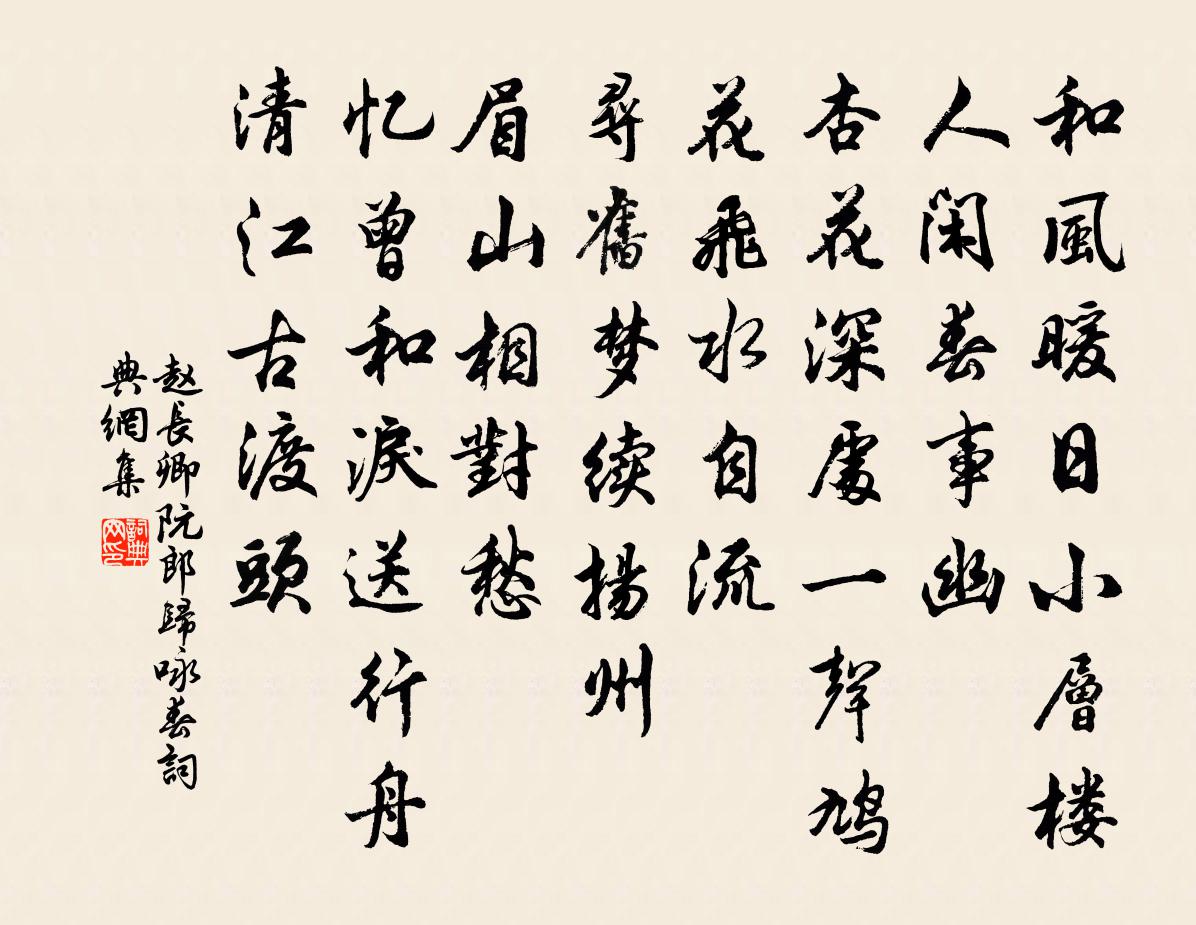 和風暖日小層楼
人闲春事幽
杏花深處一聲鸠
花飛水自流
尋舊梦续揚州
眉山相對愁
忆曾和淚送行舟
清江古渡頭
赵長卿阮郎歸咏春詞
典網集
詞典网印